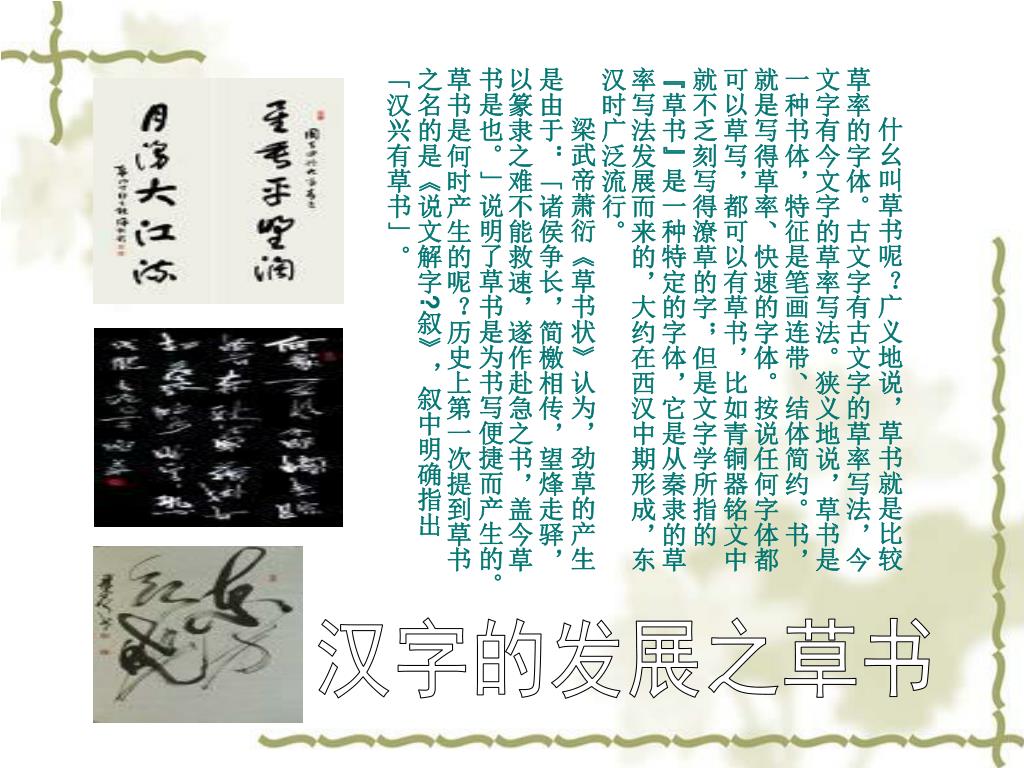 什幺叫草书呢?广义地说，草书就是比较
草率的字体。古文字有古文字的草率写法，今
文字有今文字的草率写法。狭义地说，草书是
一种书体，特征是笔画连带、结体简约。书，
就是写得草率、快速的字体。按说任何字体都
可以草写，都可以有草书，比如青铜器铭文中
就不乏刻写得潦草的字；但是文字学所指的
『草书』是一种特定的字体，它是从秦隶的草
率写法发展而来的，大约在西汉中期形成，东
汉时广泛流行。
梁武帝萧衍《草书状》认为，劲草的产生
是由于：「诸侯争长，简檄相传，望烽走驿，
以篆隶之难不能救速，遂作赴急之书，盖今草
书是也。」说明了草书是为书写便捷而产生的。
草书是何时产生的呢?历史上第一次提到草书
之名的是《说文解字?叙》，叙中明确指出
「汉兴有草书」。
星垂平野阔
月涌大江流
汉字的发展之草书